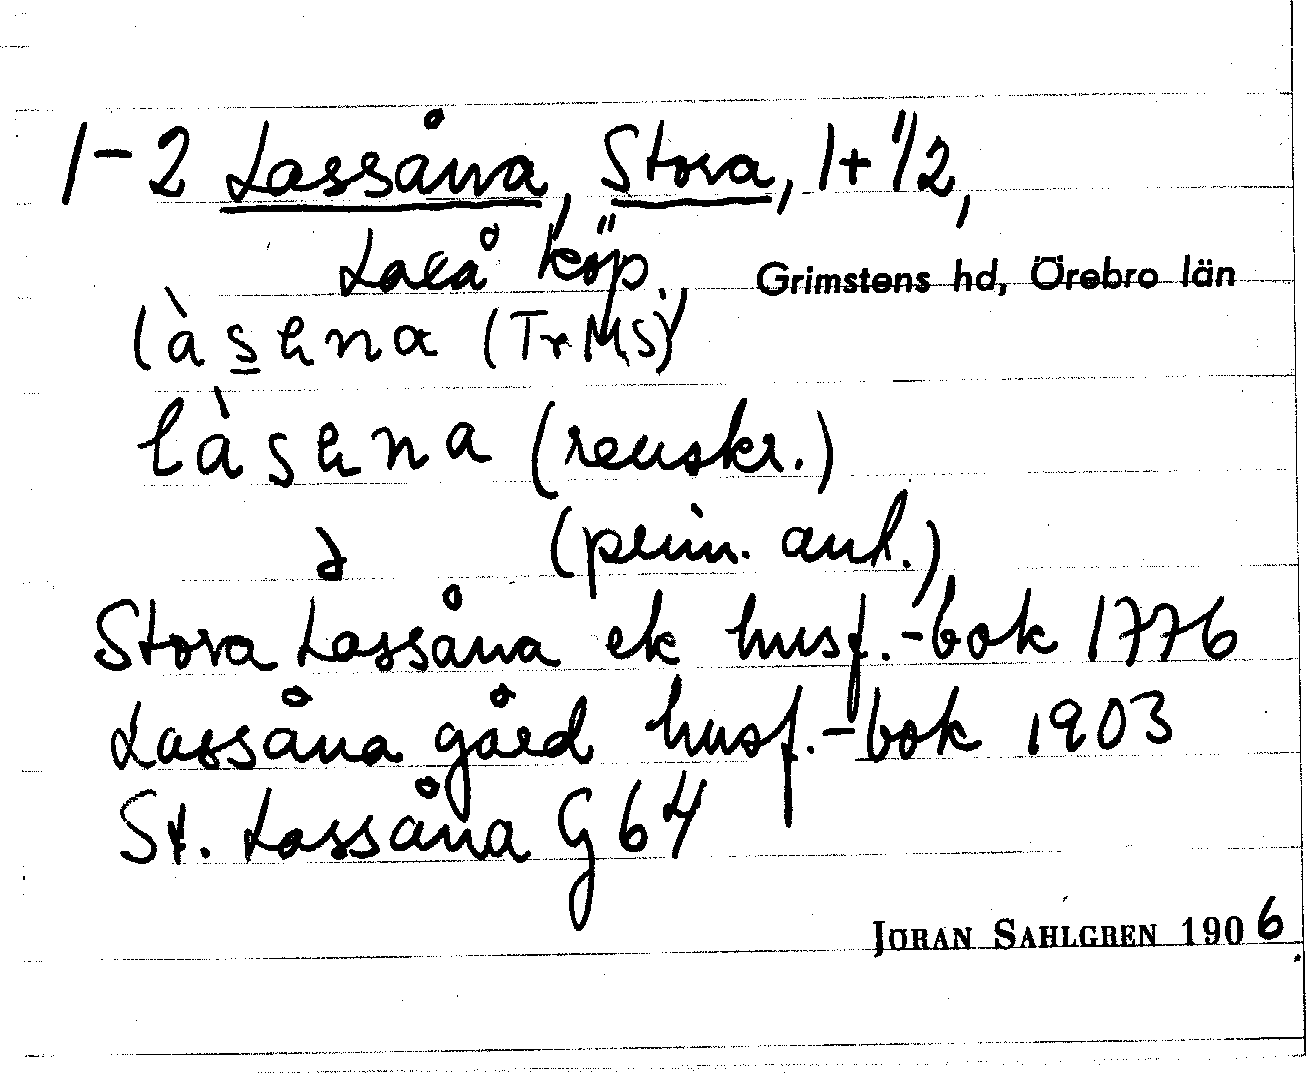 1-2 Lassåna, Stora, 1+1/2,
Laxå köp., Grimstens hd, Örebro län
làsena (TrMS)
làsena (renskr.)
(prim. anl.)
Stora Lassåna ek husf.-bok 1776
Lassåna gård husf.-bok 1903
St. Lassåna G 64
JÖRAN SAHLGREN 1906